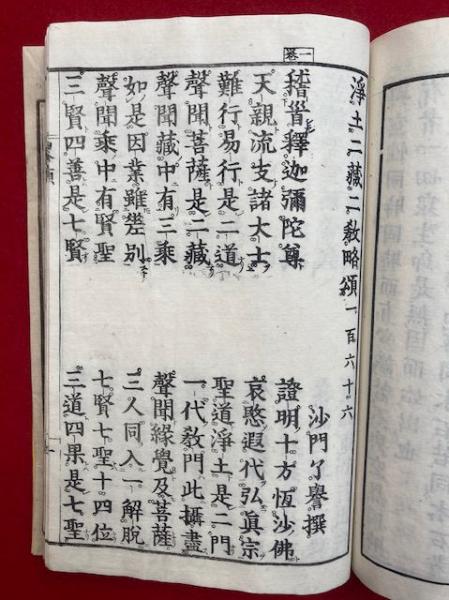 一巻
淨土二藏二教略頌一百六十六
沙門了譽撰
稽首釋迦彌陀尊　證明十方恆沙佛
天親流支諸大士　哀愍遐代弘眞宗
難行易行是二道　聖道淨土是二門
聲聞菩薩是二藏　一代教門此攝盡
聲聞藏中有三乘　聲聞緣覺及菩薩
如是因業雖差別　三人同入一解脫
聲聞乘中有賢聖　七賢七聖十四位
三賢四善是七賢　三道四果是七聖